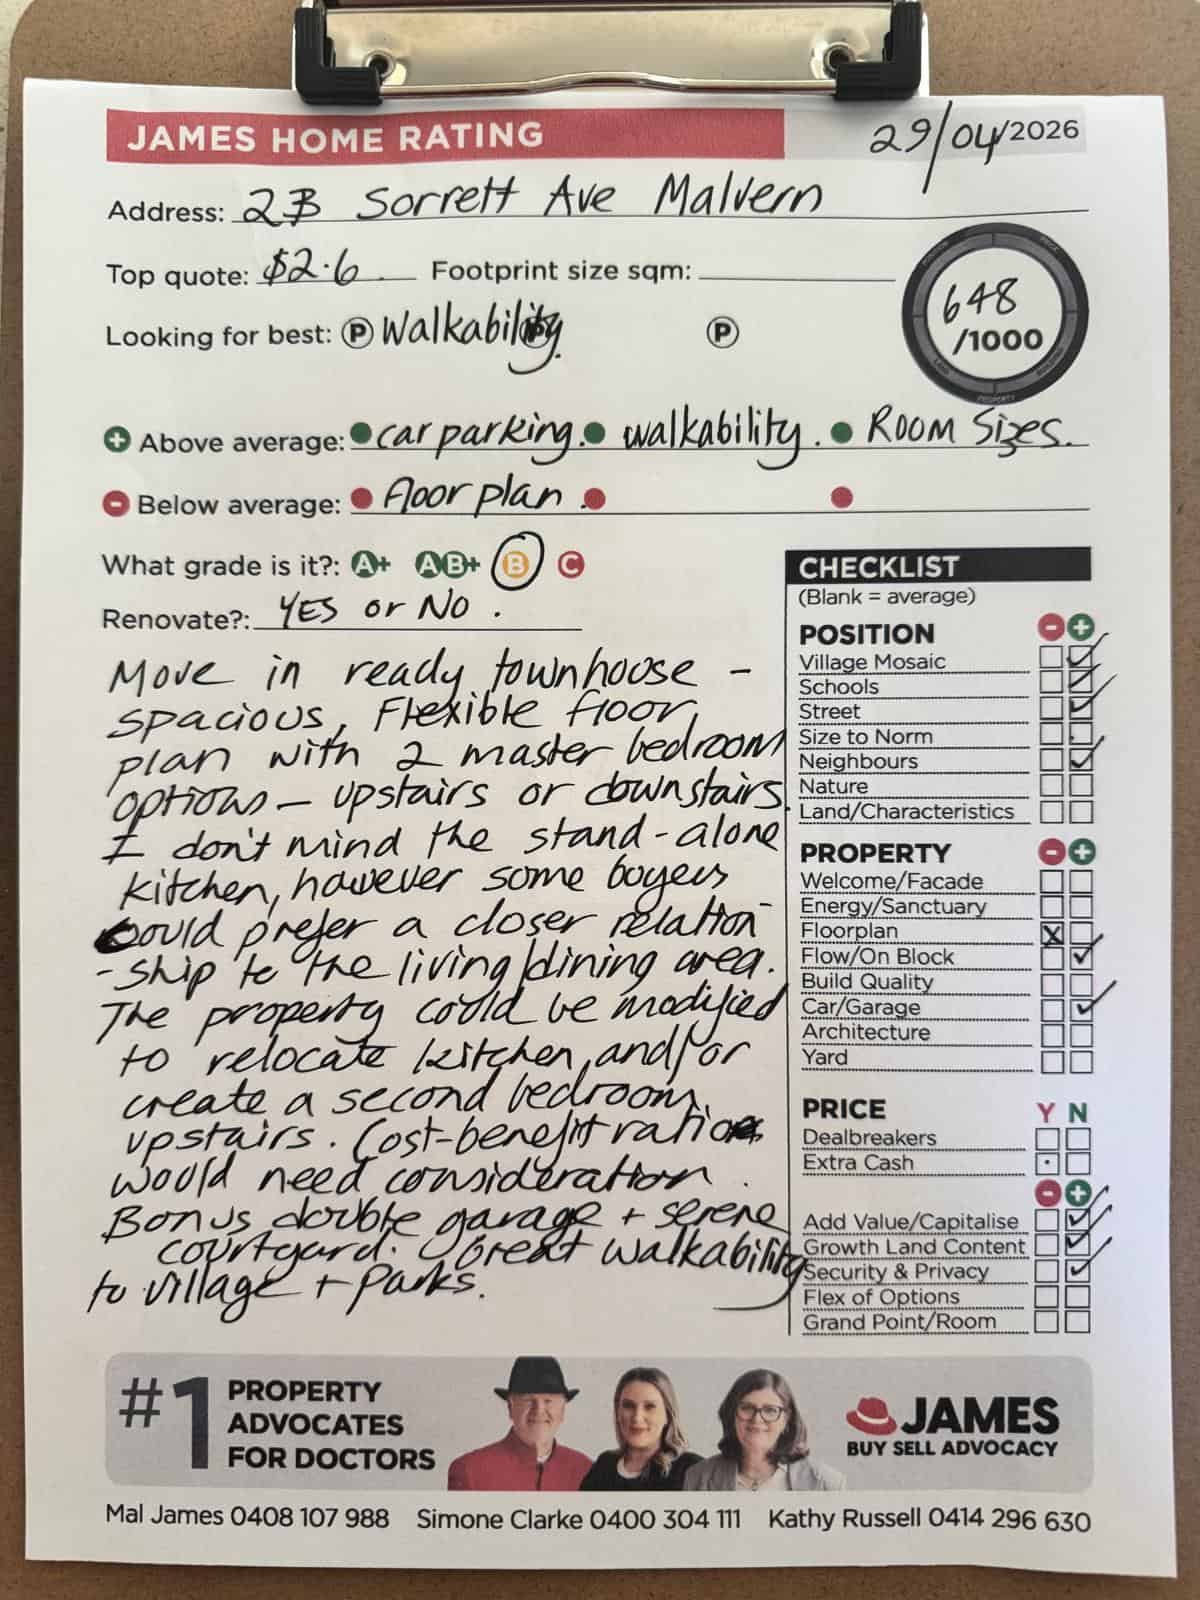 JAMES HOME RATING
29/04/2026
Address: 2B Sorrett Ave Malvern
Top quote: $2.6 Footprint size sqm:
648
/1000
Looking for best: P Walkability. P
+ Above average: car parking. walkability. Room Sizes.
- Below average: floor plan.
What grade is it?: A+ AB+ B C
Renovate?: YES or NO.
Move in ready townhouse -
spacious, Flexible floor
plan with 2 master bedroom
options - upstairs or downstairs.
I don't mind the stand-alone
kitchen, however some buyers
could prefer a closer relation
-ship to the living/dining area.
The property could be modified
to relocate kitchen and/or
create a second bedroom
upstairs. Cost-benefit ratio
would need consideration.
Bonus double garage + serene
courtyard. Great walkability
to village + parks.
CHECKLIST
(Blank = average)
POSITION - +
Village Mosaic
Schools
Street
Size to Norm
Neighbours
Nature
Land/Characteristics
PROPERTY - +
Welcome/Facade
Energy/Sanctuary
Floorplan X
Flow/On Block
Build Quality
Car/Garage
Architecture
Yard
PRICE Y N
Dealbreakers
Extra Cash
- +
Add Value/Capitalise
Growth Land Content
Security & Privacy
Flex of Options
Grand Point/Room
#1 PROPERTY
ADVOCATES
FOR DOCTORS
JAMES
BUY SELL ADVOCACY
Mal James 0408 107 988 Simone Clarke 0400 304 111 Kathy Russell 0414 296 630